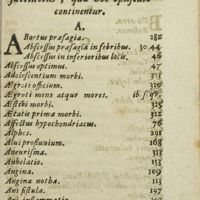 continentur.
A.
ABortus præsagia. 282
Abscessus præsagia in febribus. 30.44
Abscessus in inferioribus locis. 46
Abscessus optimus. 47
Adolescentium morbi. 323
Ægroti officium. 336
Ægroti mens atque mores. ib.
Æstivi morbi. 325
Ætatis primæ morbi. 322
Affectus hypochondriacus. 76
Alphos. 291
Alvi profluvium. 168
Aneurisma. 313
Anhelatio. 153
Angina. 109
Angina notha. 113
Ani fistula. 197